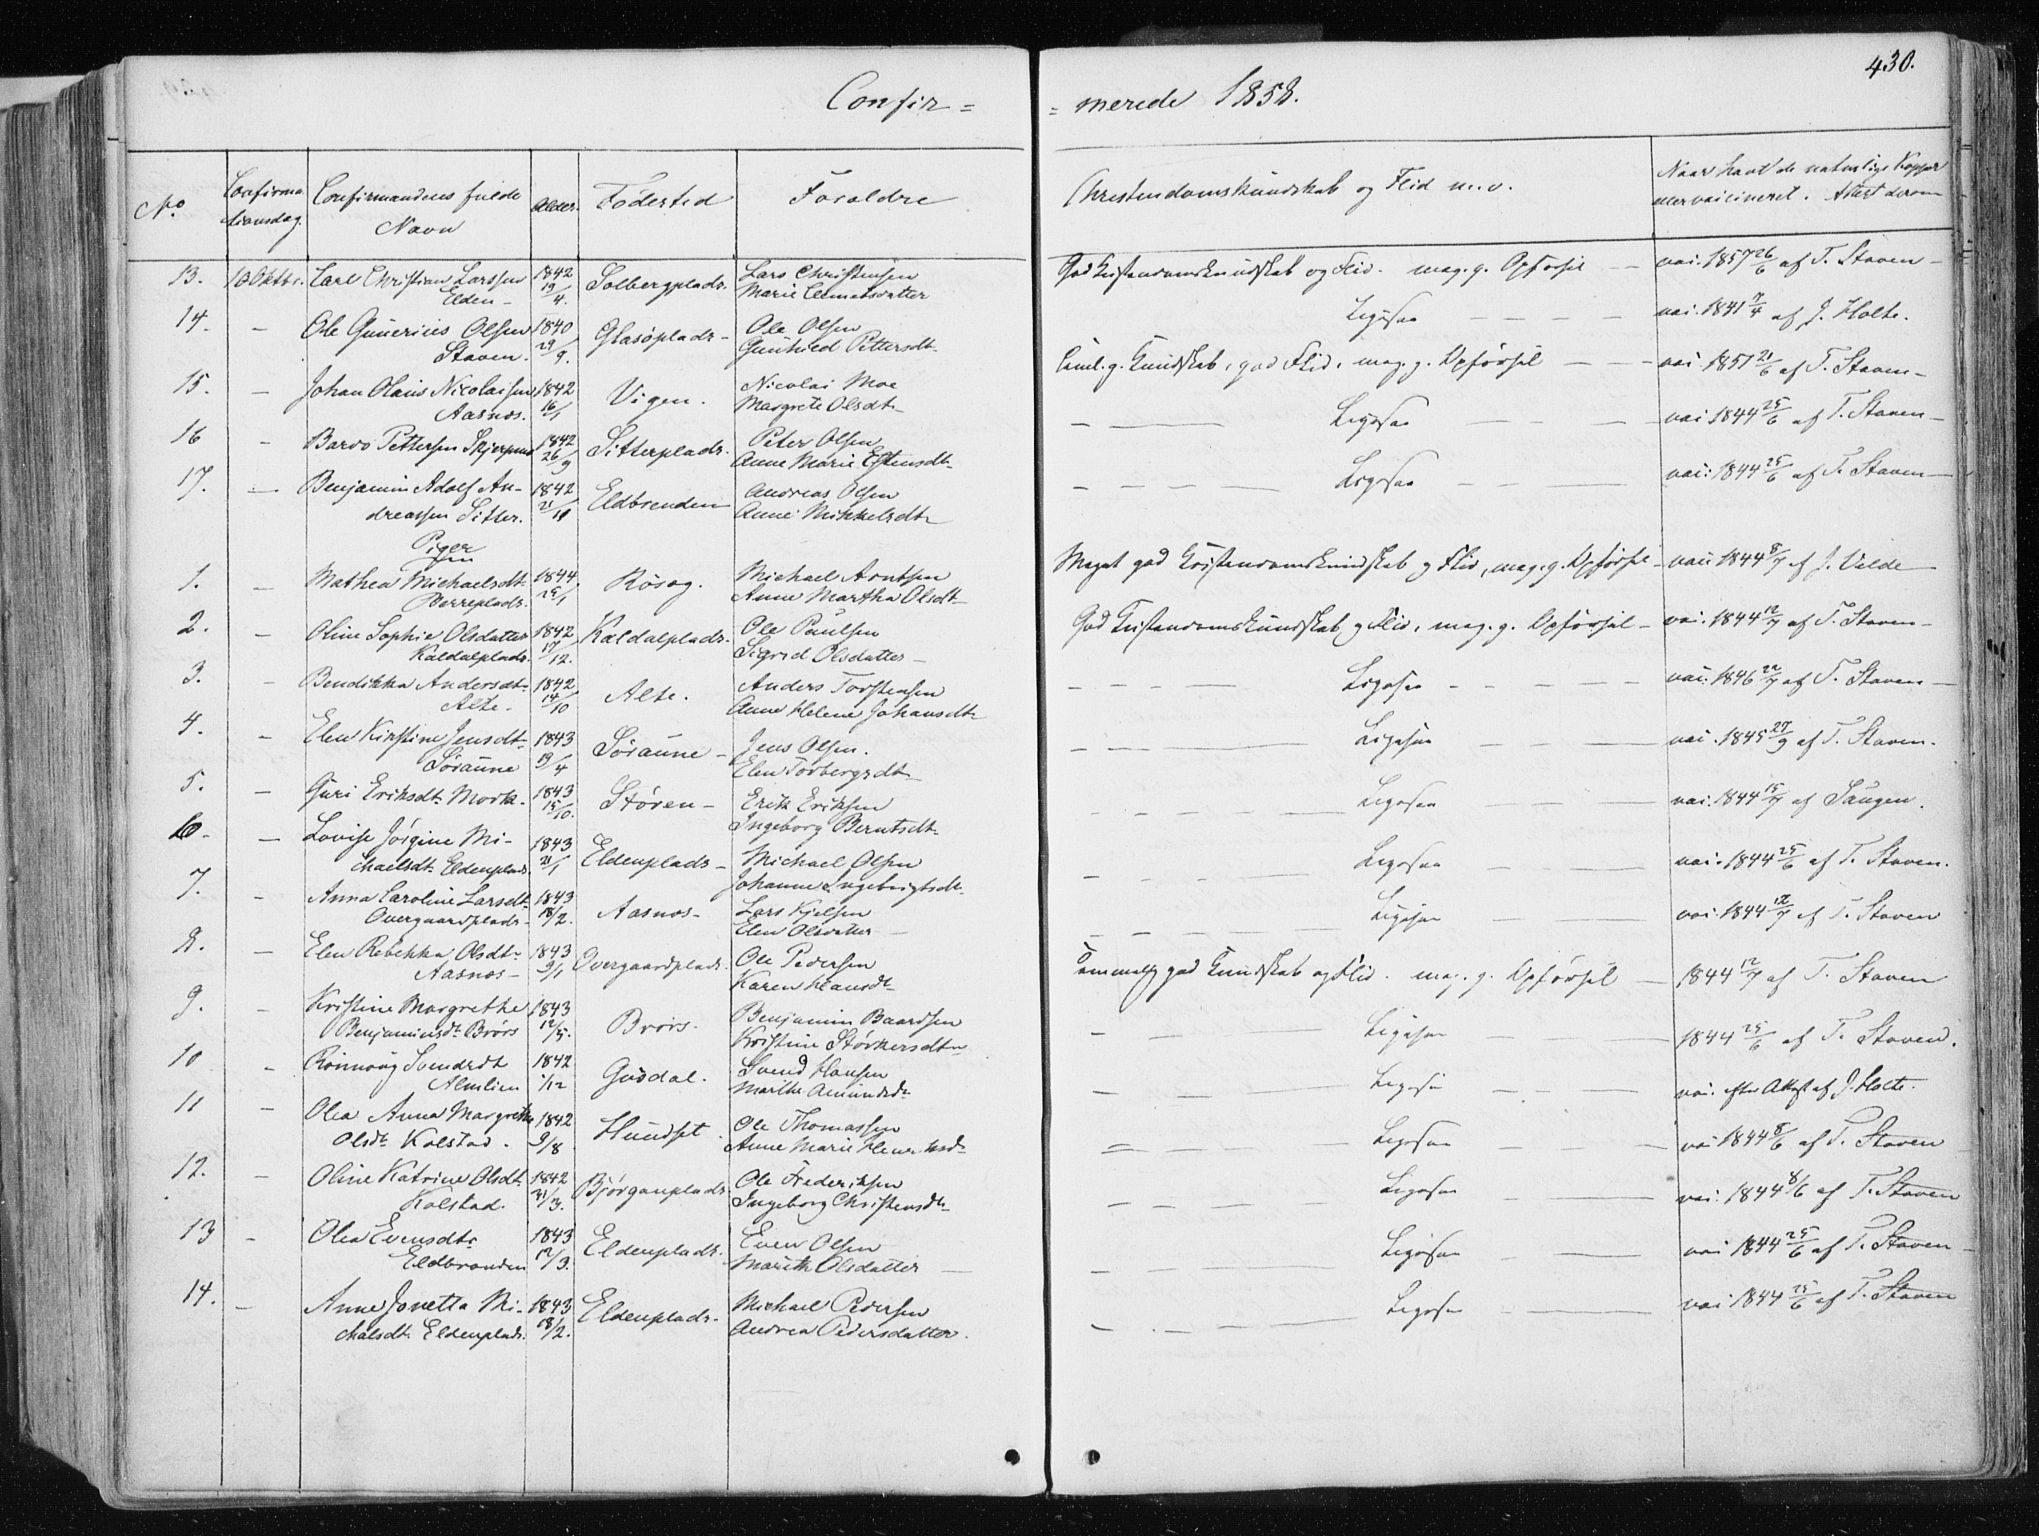 430.
Confir = = merede 1858.
No Confirmationsdag. Confirmandens fulde Navn Alder. Fødested Forældre Christendomskundskab og Flid m.v. Naar havt de naturlige Kopper eller vaccineret. Attest derom
13. 10 Oktbr. Carl Christian Larssen 1842 Solbergplads. Lars Christensen God Kristendomskundskab og Flid. meg. g. Opførsel vac. 1857 26/6 af T. Staven
Elden 19/4. Marie Clemetsdatter
14. Ole Gunerius Olsen 1840 Glasøplads Ole Olsen Ligesaa vac. 1841 7/4 af J. Holte.
Staven. 29/9. Gunhild Pettersdt.
15. Johan Olaus Nicolaisen 1842 Vigen. Nicolai Moe Teml. g. Kundskab, god Flid, meg. g. Opførsel vac. 1851 21/6 af T. Staven
Aasnos. 16/1 Margrete Olsdt.
16 Bardo Pettersen 1842 Sitterplads. Peter Olsen Ligesaa vac. 1844 25/6 af T. Staven
26/9 Anne Marie Estensdt.
17. Benjamin Adolf An- 1842 Eldbrenden Andreas Olsen Ligesaa vac. 1844 25/6 af T. Staven
dreassen Sitter. 21/10 Anne Mikkelsdt.
Piger
1. Mathea Michaelsdt. 1844. Rosog. Michael Arntsen Meget god Kristendomskundskab og Flid, meg. g. Opførsel vac. 1844 8/7 af J. Velde
25/1 Anne Martha Olsdt.
2. Oline Sophie Olsdatter 1842 Kaldalplads. Ole Paulsen God Kristendomskundskab og Flid, meg. g. Opførsel vac. 1844 12/7 af T. Staven
Kaldalplads. 17/12. Sigrid Olsdatter
3. Bendikka Andersdt. 1842 Alte. Anders Torstensen Ligesaa vac. 1846 22/7 af T. Staven
Alte. 14/10 Anne Helene Johansdt.
4. Elen Kirstine Jensdt. 1843 Søraune Jens Olsen. Ligesaa vac. 1845 27/9 af T. Staven.
Søraune 19/4 Elen Torbergsdt.
5. Guri Eriksdt. Mork. 1843 Støren Erik Eriksen Ligesaa vac. 1844 15/7 af Saugen.
15/10. Ingeborg Berntsdt.
6. Lovise Jørgine Mi- 1843 Eldenplads Michael Olsen Ligesaa vac. 1844 25/6 af T. Staven.
chaelsdt. Eldenplads. 21/1 Johanna Ingebrigtsdt.
7. Anna Caroline Larsdt. 1843 Aasnos Lars Kjelsen Ligesaa vac. 1844 12/7 af T. Staven
Overgaardplads 18/2. Elen Olsdatter
8. Elen Rebekka Olsdt. 1843 Overgaardplads. Ole Pedersen Temmelig god Kundskab og Flid. meg. g. Opførsel 1844 12/7 af T. Staven
Aasnos 9/1 Karen Hansdt.
9. Kristine Margrethe 1843 Brørs. Benjamin Baardsen Ligesaa 1844 25/6 af T. Staven.
Benjaminsdt. Brørs 12/5. Kristine Størkersdtr
10 Rønnaug Svendsdt 1842 Gusdal. Svend Hansen Ligesaa vac. efter Attest af J. Holte.
Almlien 1/12 Marthe Amundsdt.
11 Olea Anna Margrethe 1842 Hundset. Ole Thomassen Ligesaa vac. 1844 8/6 af T. Staven
Olsdt. Kolstad. 9/8 Anne Marie Henriksdt.
12. Oline Katrine Olsdt. 1842 Bjørganplads Ole Frederiksen Ligesaa vac. 1844 8/6 af T. Staven
Kolstad. 21/3. Ingeborg Christensdt.
13 Olea Evensdt. 1843 Eldenplads. Even Olsen Ligesaa vac 1844 25/6 af T. Staven
Eldbranden 12/3. Marith Olsdatter
14. Anne Jonetta Mi- 1843 Eldenplads. Michael Pedersen Ligesaa vac. 1844 25/6 af T. Staven
chalsdt. Eldenplads. 18/2. Andrea Pedersdatter.